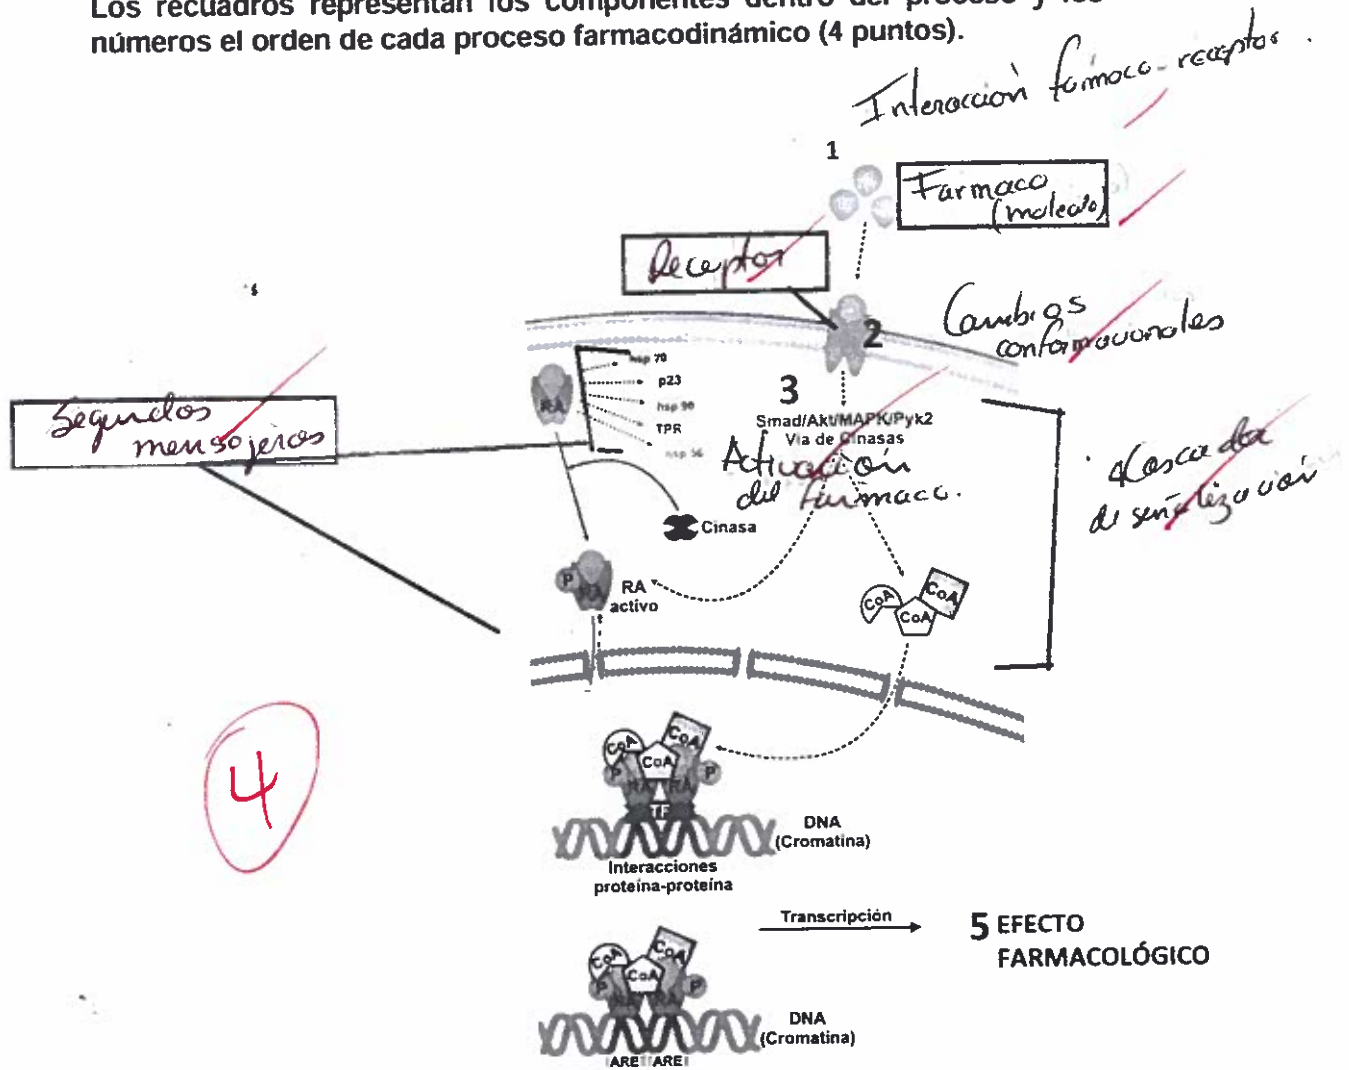 números el orden de cada proceso farmacodinámico (4 puntos).
Interacción fármaco-receptor.
1
Farmaco
(molecula)
Receptor
2
Cambios
conformacionales
hsp 70
p23
hsp 90
TPR
hsp 56
RA
3
Smad/Akt/MAPK/Pyk2
Vía de Cinasas
Activación
del farmaco.
Segundos
mensajeros
Cascada
de señalización
Cinasa
P
RA
RA
activo
CoA
CoA
CoA
4
CoA
CoA
CoA
P
RA
RA
P
TF
DNA
(Cromatina)
Interacciones
proteína-proteína
Transcripción
5 EFECTO
FARMACOLÓGICO
CoA
CoA
CoA
P
RA
RA
P
DNA
(Cromatina)
ARE ARE